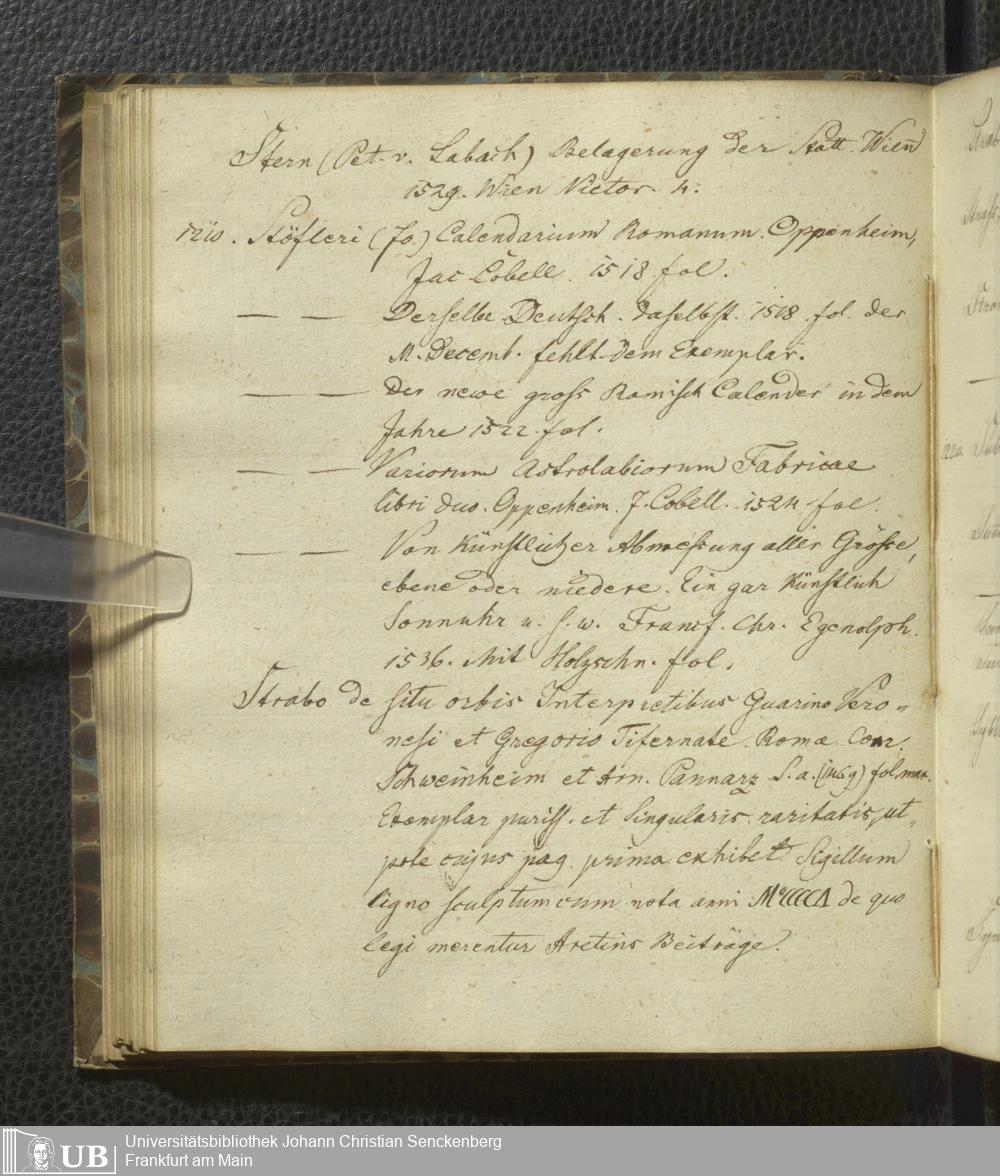 Stern (Pet. v. Labach) Belagerung der Statt Wien
1529. Wien Victor. 4.
1210. Stöfleri (Jo.) Calendarium Romanum. Oppenheim,
Jac Cöbell. 1518 fol.
— — Derselbe Deutsch. Daselbst. 1518. fol. der
M. Decemb. fehlt dem Exemplar.
— — Der newe gross Romisch Calender in dem
Jahre 1522 fol.
— — Variorum Astrolabiorum Fabricae
libri duo. Oppenheim. J. Cobell. 1524 fol.
— — Von Künstlicher Abmessung aller Grösse,
ebene oder niedere. Ein gar Künstlich
Sonnuhr u. s. w. Francf. Chr. Egenolph.
1536. Mit Holzschn. fol.
Strabo de situ orbis Interpretibus Guarino Vero„
nesi et Gregorio Tifernate. Romæ Conr.
Schweinheim et Arn. Pannarz S. a. (1469) fol. max.
Exemplar puriss. et singularis raritatis, ut„
pote cujus pag. prima exhibet Sigillum
ligno sculptum cum nota anni de quo
legi merentur Aretins Beiträge.
Universitätsbibliothek Johann Christian Senckenberg
Frankfurt am Main
UB